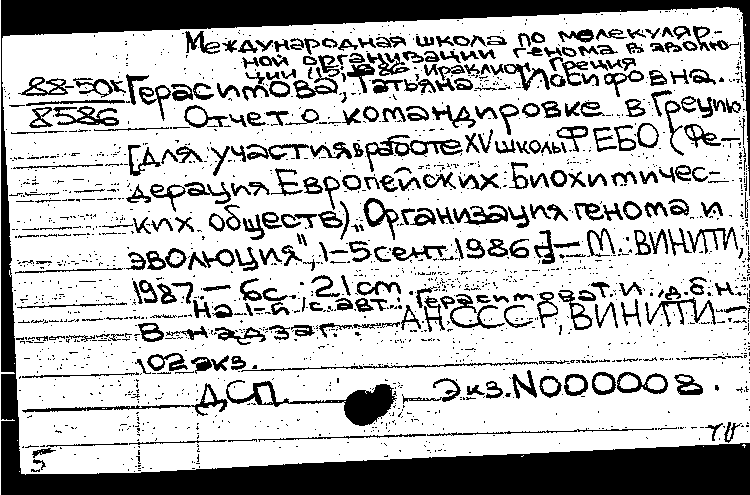 Международная школа по молекуляр-
ной организации генома в эволю-
ции (15, 1986, Ираклион, Греция
88-50к Герасимова, Татьяна Иосифовна.
8586 Отчет о командировке в Грецию
[для участия в работе XV школы ФЕБО (Фе-
дерация Европейских Биохимичес-
ких обществ) „Организация генома и
эволюция", 1-5 сент. 1986 г.] — М.: ВИНИТИ,
1987. — 6с.; 21 cm.
На 1-й с. авт.: Герасимова Т.И., д.б.н.
В надзаг.: АН СССР, ВИНИТИ —
102 экз.
ДСП. Экз. N000008.
5